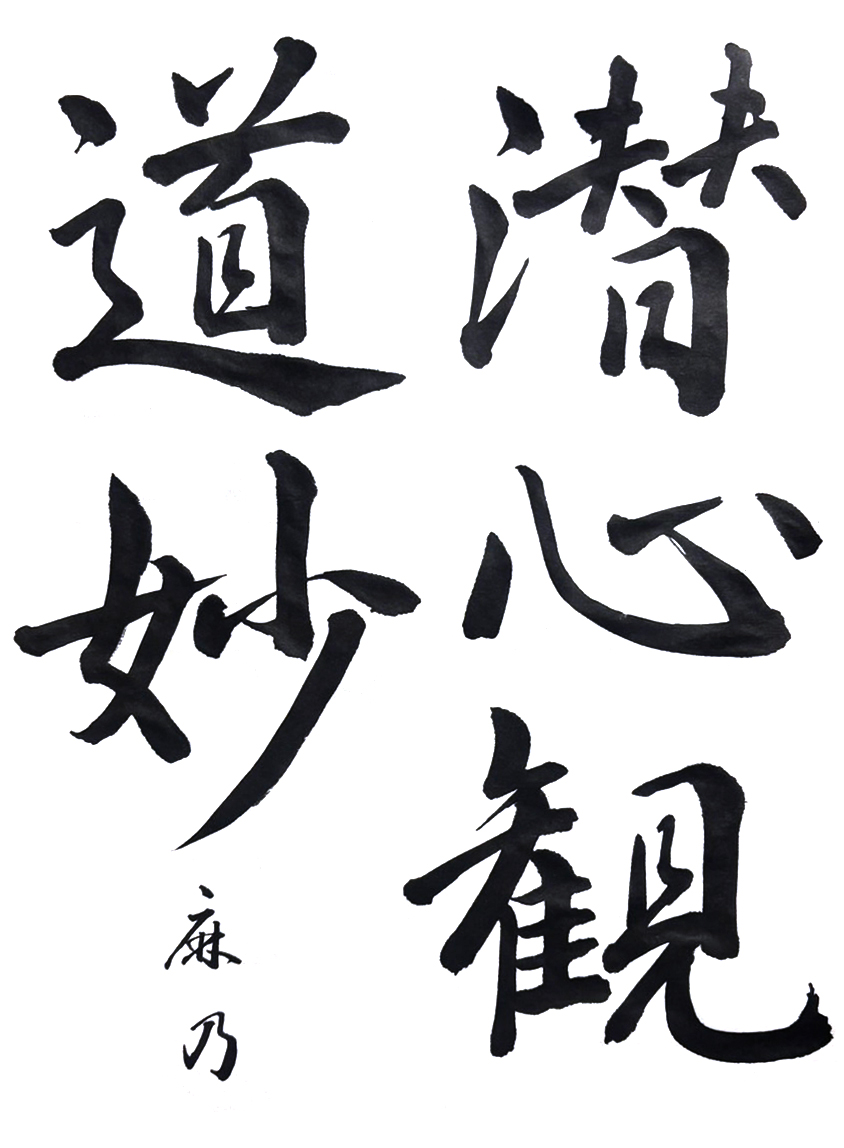 潜心観
道妙
麻乃